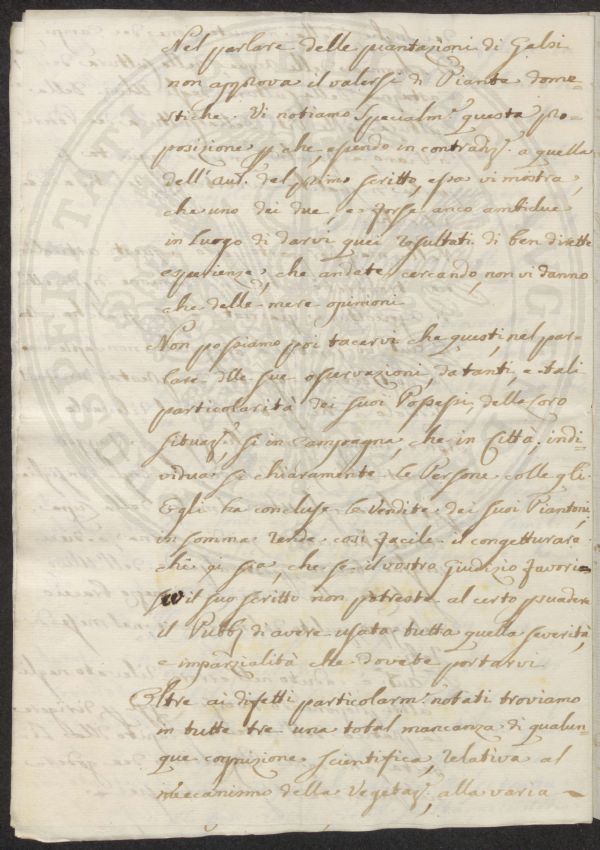 Nel parlare delle piantazioni di Gelsi
non approva il valersi di Piante dome-
stiche. Vi notiamo specialm.e questa pro-
posizione p che, essendo in contradiz.e a quella
dell'Aut. del primo scritto, essa vi mostra,
che uno dei due, e forse anco ambidue
in luogo di darvi quei resultati di ben dirette
esperienze, che andate cercando, non vi danno
che delle mere opinioni
Non possiamo poi tacervi che questi, nel par-
lare delle sue osservazioni, da tanti, e tali
particolarità dei suoi Possessi, delle loro
situaz.i, si in Campagna, che in Città, indi-
vidua si chiaramente le Persone colle quali
Egli ha concluse le Vendite dei suoi Piantoni,
in somma rende così facile il congetturare
chi ei sia, che se il vostro Giudizio favoris-
se il suo scritto non potreste al certo psuadere
il Pubb. di avere usata tutta quella severità,
e imparzialità che dovete portarvi
Oltre ai difetti particolarm.e notati troviamo
in tutte tre una total mancanza di qualun-
que cognizione scientifica, relativa al
meccanismo della Vegetaz.e, alla varia